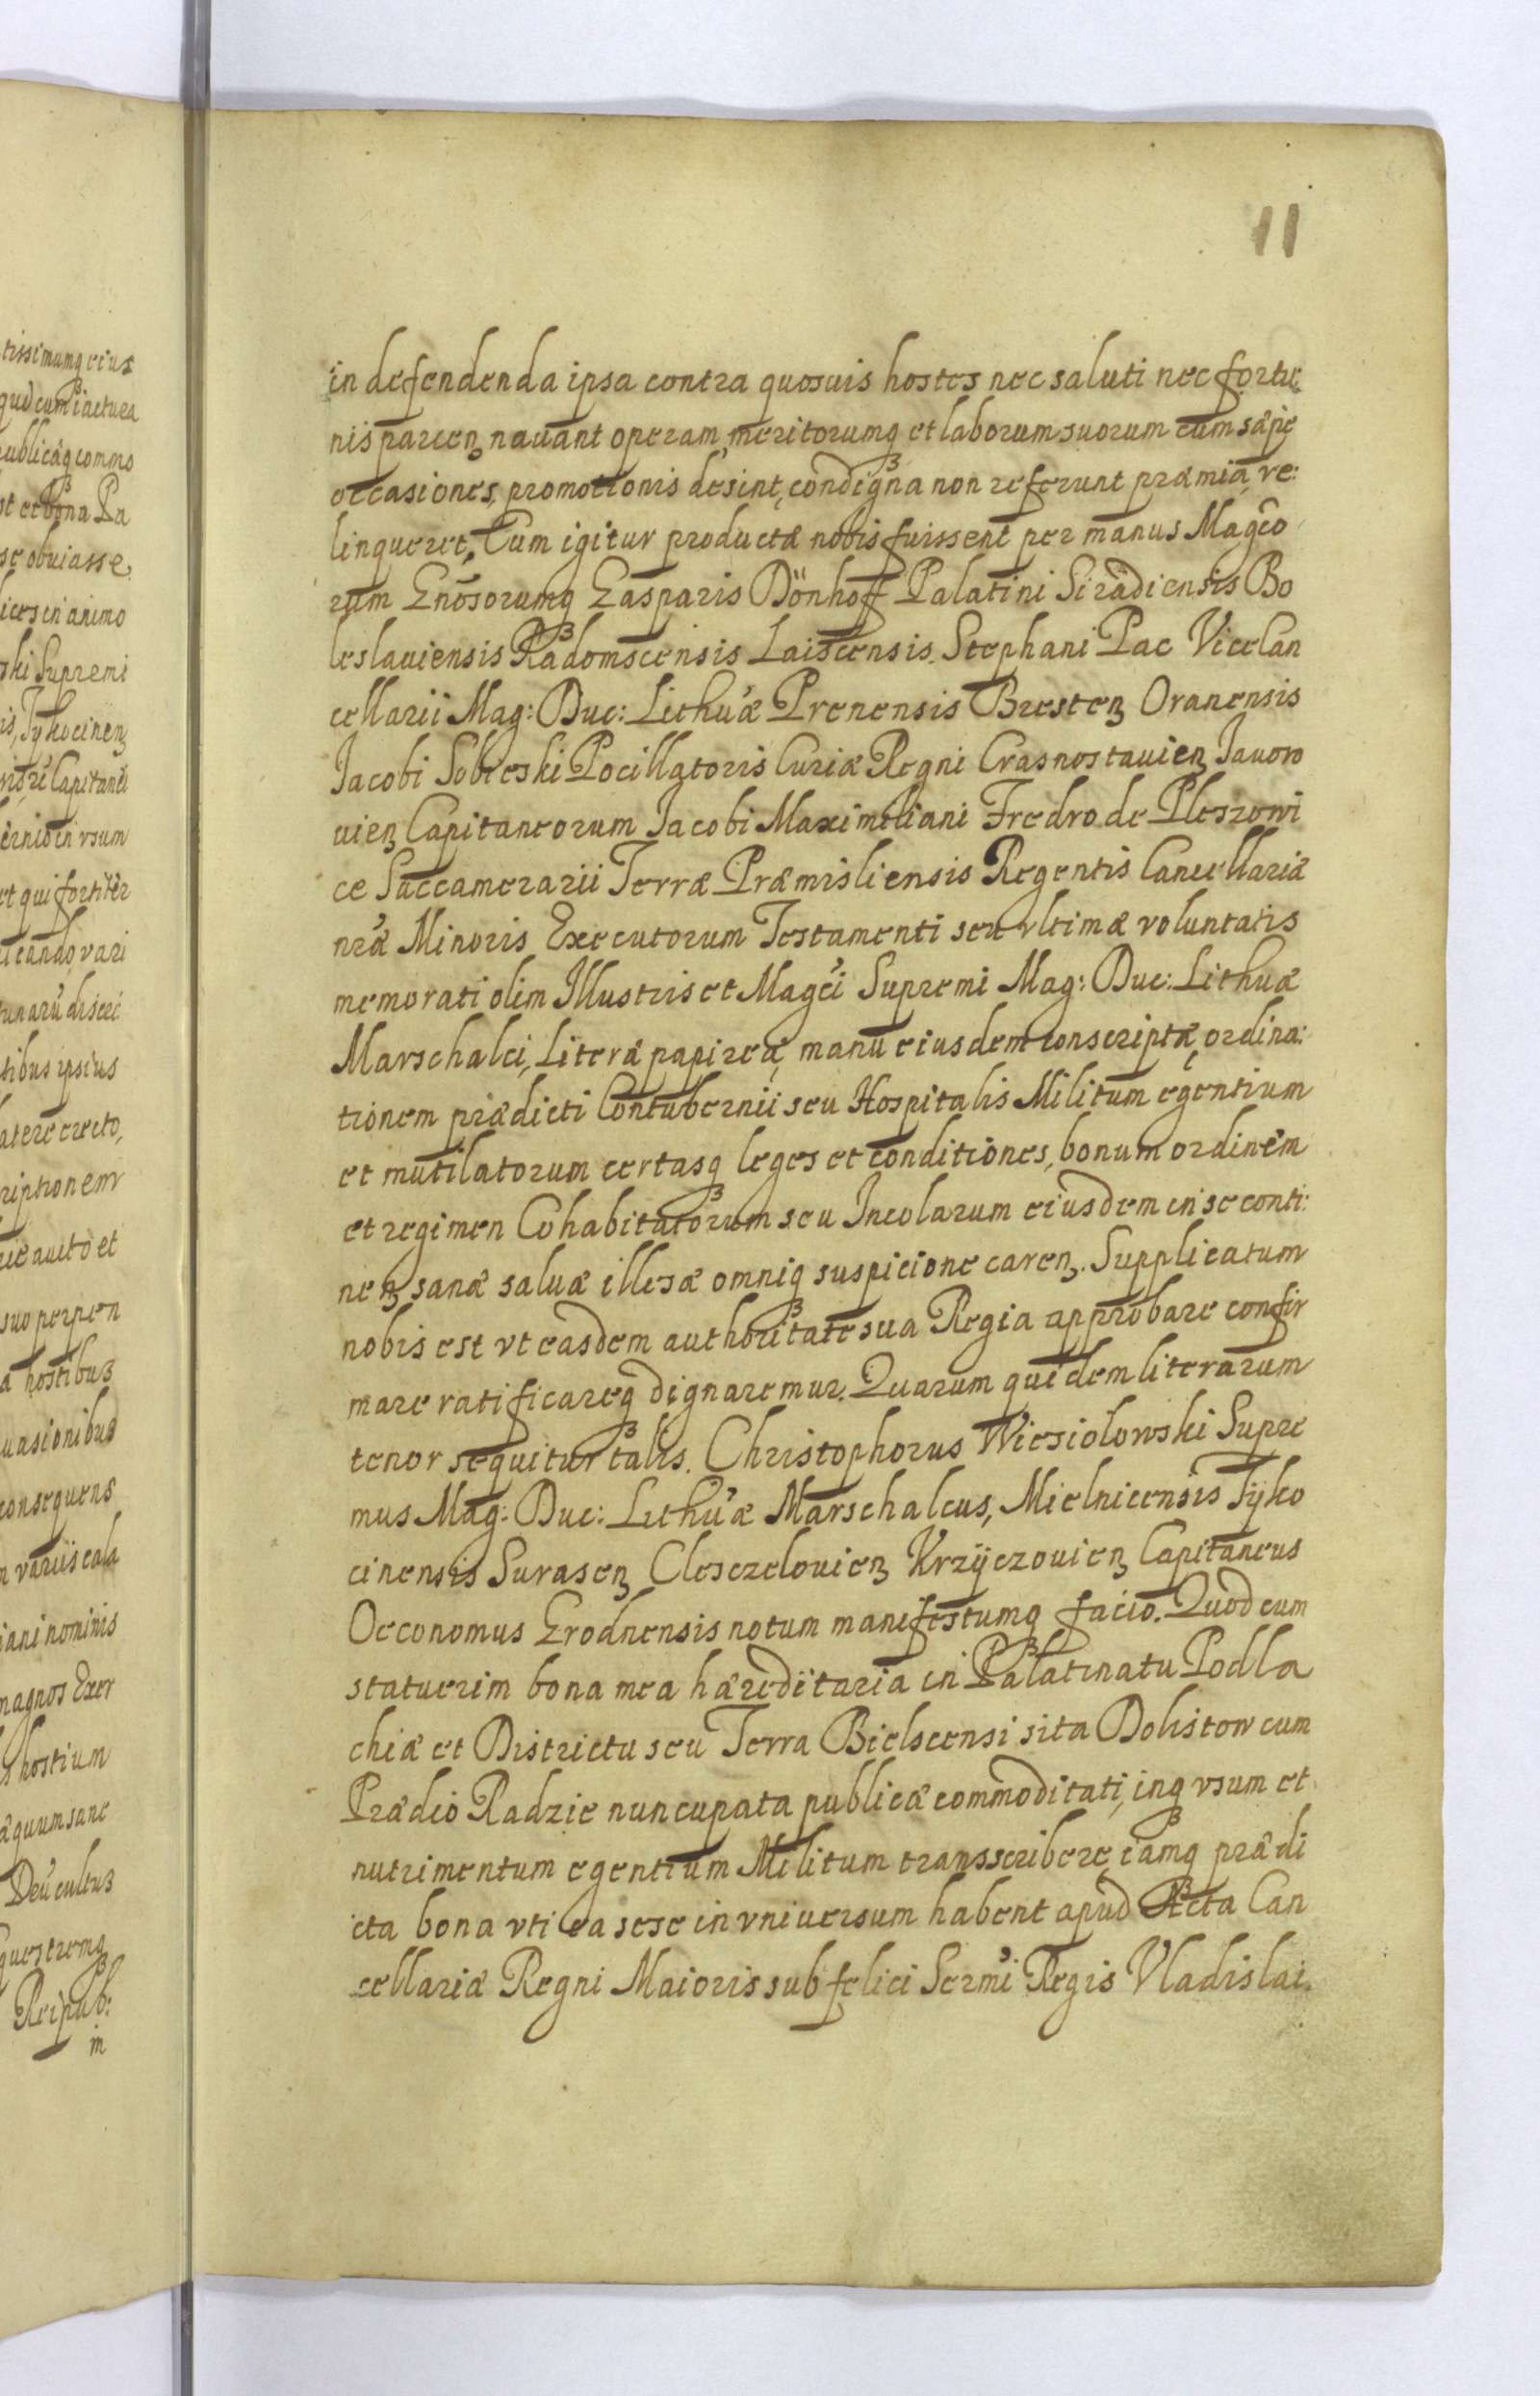 11
in defendenda ipsa contra quosuis hostes nec saluti nec fortu
nis parcenȝ nauant operam, meritorumqȝ et laborum suorum cum sæpe
occasiones, promotionis desint, condigna non referunt præmia, re:
linqueret. Cum igitur productæ nobis fuissent per manus Magco
rum Gnosorumqȝ Gasparis Dönhoff Palatini Siradiensis Bo
leslauiensis Radomscensis Laiscensis. Stephani Pac Vicecan
cellarii Mag: Duc: Lithuæ Prenensis Brestenȝ Oranensis
Jacobi Sobieski Pocillatoris Curiæ Regni Crasnostauienȝ Jauoro
uienȝ Capitaneorum Jacobi Maximiliani Fredro de Pleszowi
ce Succamerarii Terræ Præmisliensis Regentis Cancellariæ
nræ Minoris Executorum Testamenti seu vltimæ voluntatis
memorati olim Illustris et Magci Supremi Mag: Duc: Lithuæ
Marschalci, Literæ papireæ, manu eiusdem conscriptæ, ordina:
tionem prædicti Contubernii seu Hospitalis Militum egentium
et mutilatorum certasqȝ leges et conditiones, bonum ordinem
et regimen Cohabitatorum seu Incolarum eiusdem in se conti:
nenȝ sanæ saluæ illesæ omniqȝ suspicione carenȝ. Supplicatum
nobis est vt easdem authoritate sua Regia approbare confir
mare ratificareqȝ dignaremur. Quarum quidem literarum
tenor sequitur talis. Christophorus Wiesiolowski Supre
mus Mag: Duc: Lithuæ Marschalcus, Mielnicensis Tyko
cinensis Surasenȝ Clesczelouienȝ Krzÿczouienȝ Capitaneus
Oeconomus Grodnensis notum manifestumqȝ facio. Quod cum
statuerim bona mea hæreditaria in Palatinatu Podla
chiæ et Districtu seu Terra Bielscensi sita Dolistow cum
Prædio Radzie nuncupata publicæ commoditati, inqȝ vsum et
nutrimentum egentium Militum transscribere, iamqȝ prædi
cta bona vti ea sese in vniuersum habent apud Acta Can
cellariæ Regni Maioris sub felici Sermi Regis Vladislai.